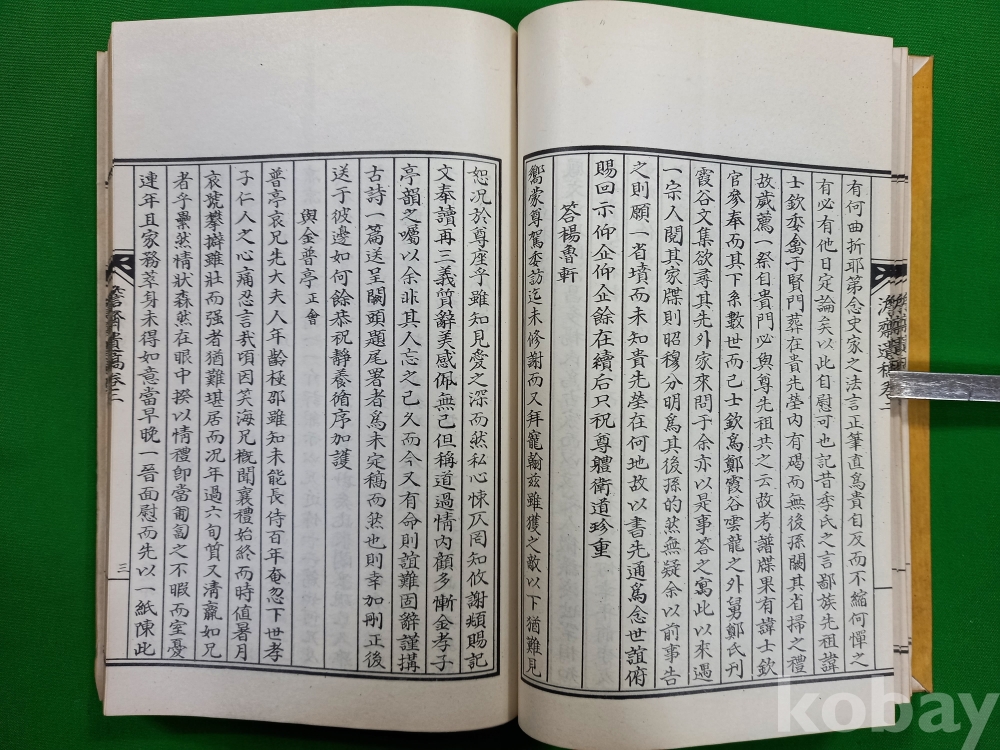 有何曲折耶第念史家之法言正筆直爲貴自反而不縮何憚之
有必有他日定論矣以此自慰可也記昔李氏之言鄙族先祖諱
士欽委禽于賢門葬在貴先塋內有碣而無後孫闕其省掃之禮
故歲薦一祭自貴門必與尊先祖共之云故考譜牒果有諱士欽
官參奉而其下系數世而己士欽爲鄭霞谷雲龍之外舅鄭氏刊
霞谷文集欲尋其先外家來問于余亦以是事答之寓此以來遇
一宗人閱其家牒則昭穆分明爲其後孫的然無疑余以前事告
之則願一省墳而未知貴先塋在何地故以書先通爲念世誼俯
賜回示仰企仰企餘在續后只祝尊軆衛道珍重
答楊魯軒
嚮蒙尊駕委訪迄未修謝而又拜寵翰玆雖獲之敵以下猶難見
恕况於尊座乎雖知見愛之深而然私心悚仄罔知攸謝頫賜記
文奉讀再三義質辭美感佩無己但稱道過情內顧多慚金孝子
亭韻之囑以余非其人忘之己久而今又有命則誼難固辭謹搆
古詩一篇送呈闕頭題尾署者爲未定稿而然也則幸加刪正後
送于彼邊如何餘恭祝靜養循序加護
與金普亭 正會
普亭哀兄先大夫人年齡極卲雖知未能長侍百年奄忽下世孝
子仁人之心痛忍言哉頃因笑海兄概聞襄禮始終而時值暑月
哀號攀擗雖壯而强者猶難堪居而况年過六旬質又清羸如兄
者乎纍然情狀森然在眼中揆以情禮卽當匍匐之不暇而室憂
連年且家務萃身未得如意當早晚一晉面慰而先以一紙陳此
三
kobay